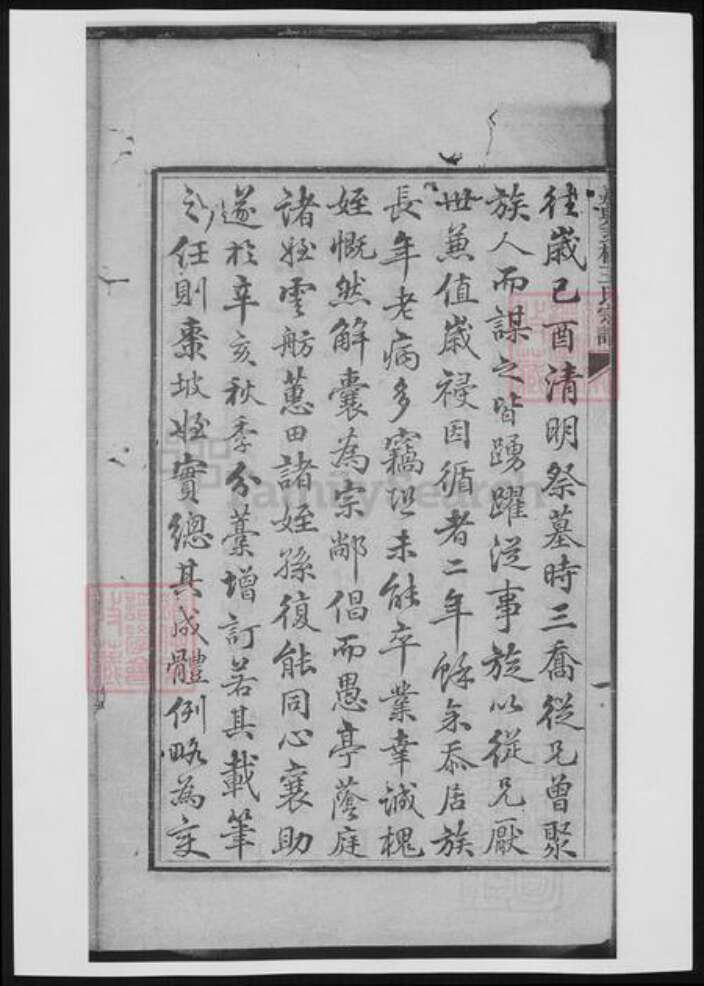 往歲己酉清明祭墓時三喬從兄曾聚
族人而謀之皆踴躍從事旋以從兄厭
世兼值歲祲因循者二年餘余忝居族
長年老病多竊恐未能卒業幸誠槐
姪慨然解囊為宗鄰倡而愚亭蔭庭
諸姪雲舫蕙田諸姪孫復能同心襄助
遂於辛亥秋季分藁增訂若其載筆
之任則棗坡姪實總其成體例略為変
王氏宗譜
一
FamilySearch